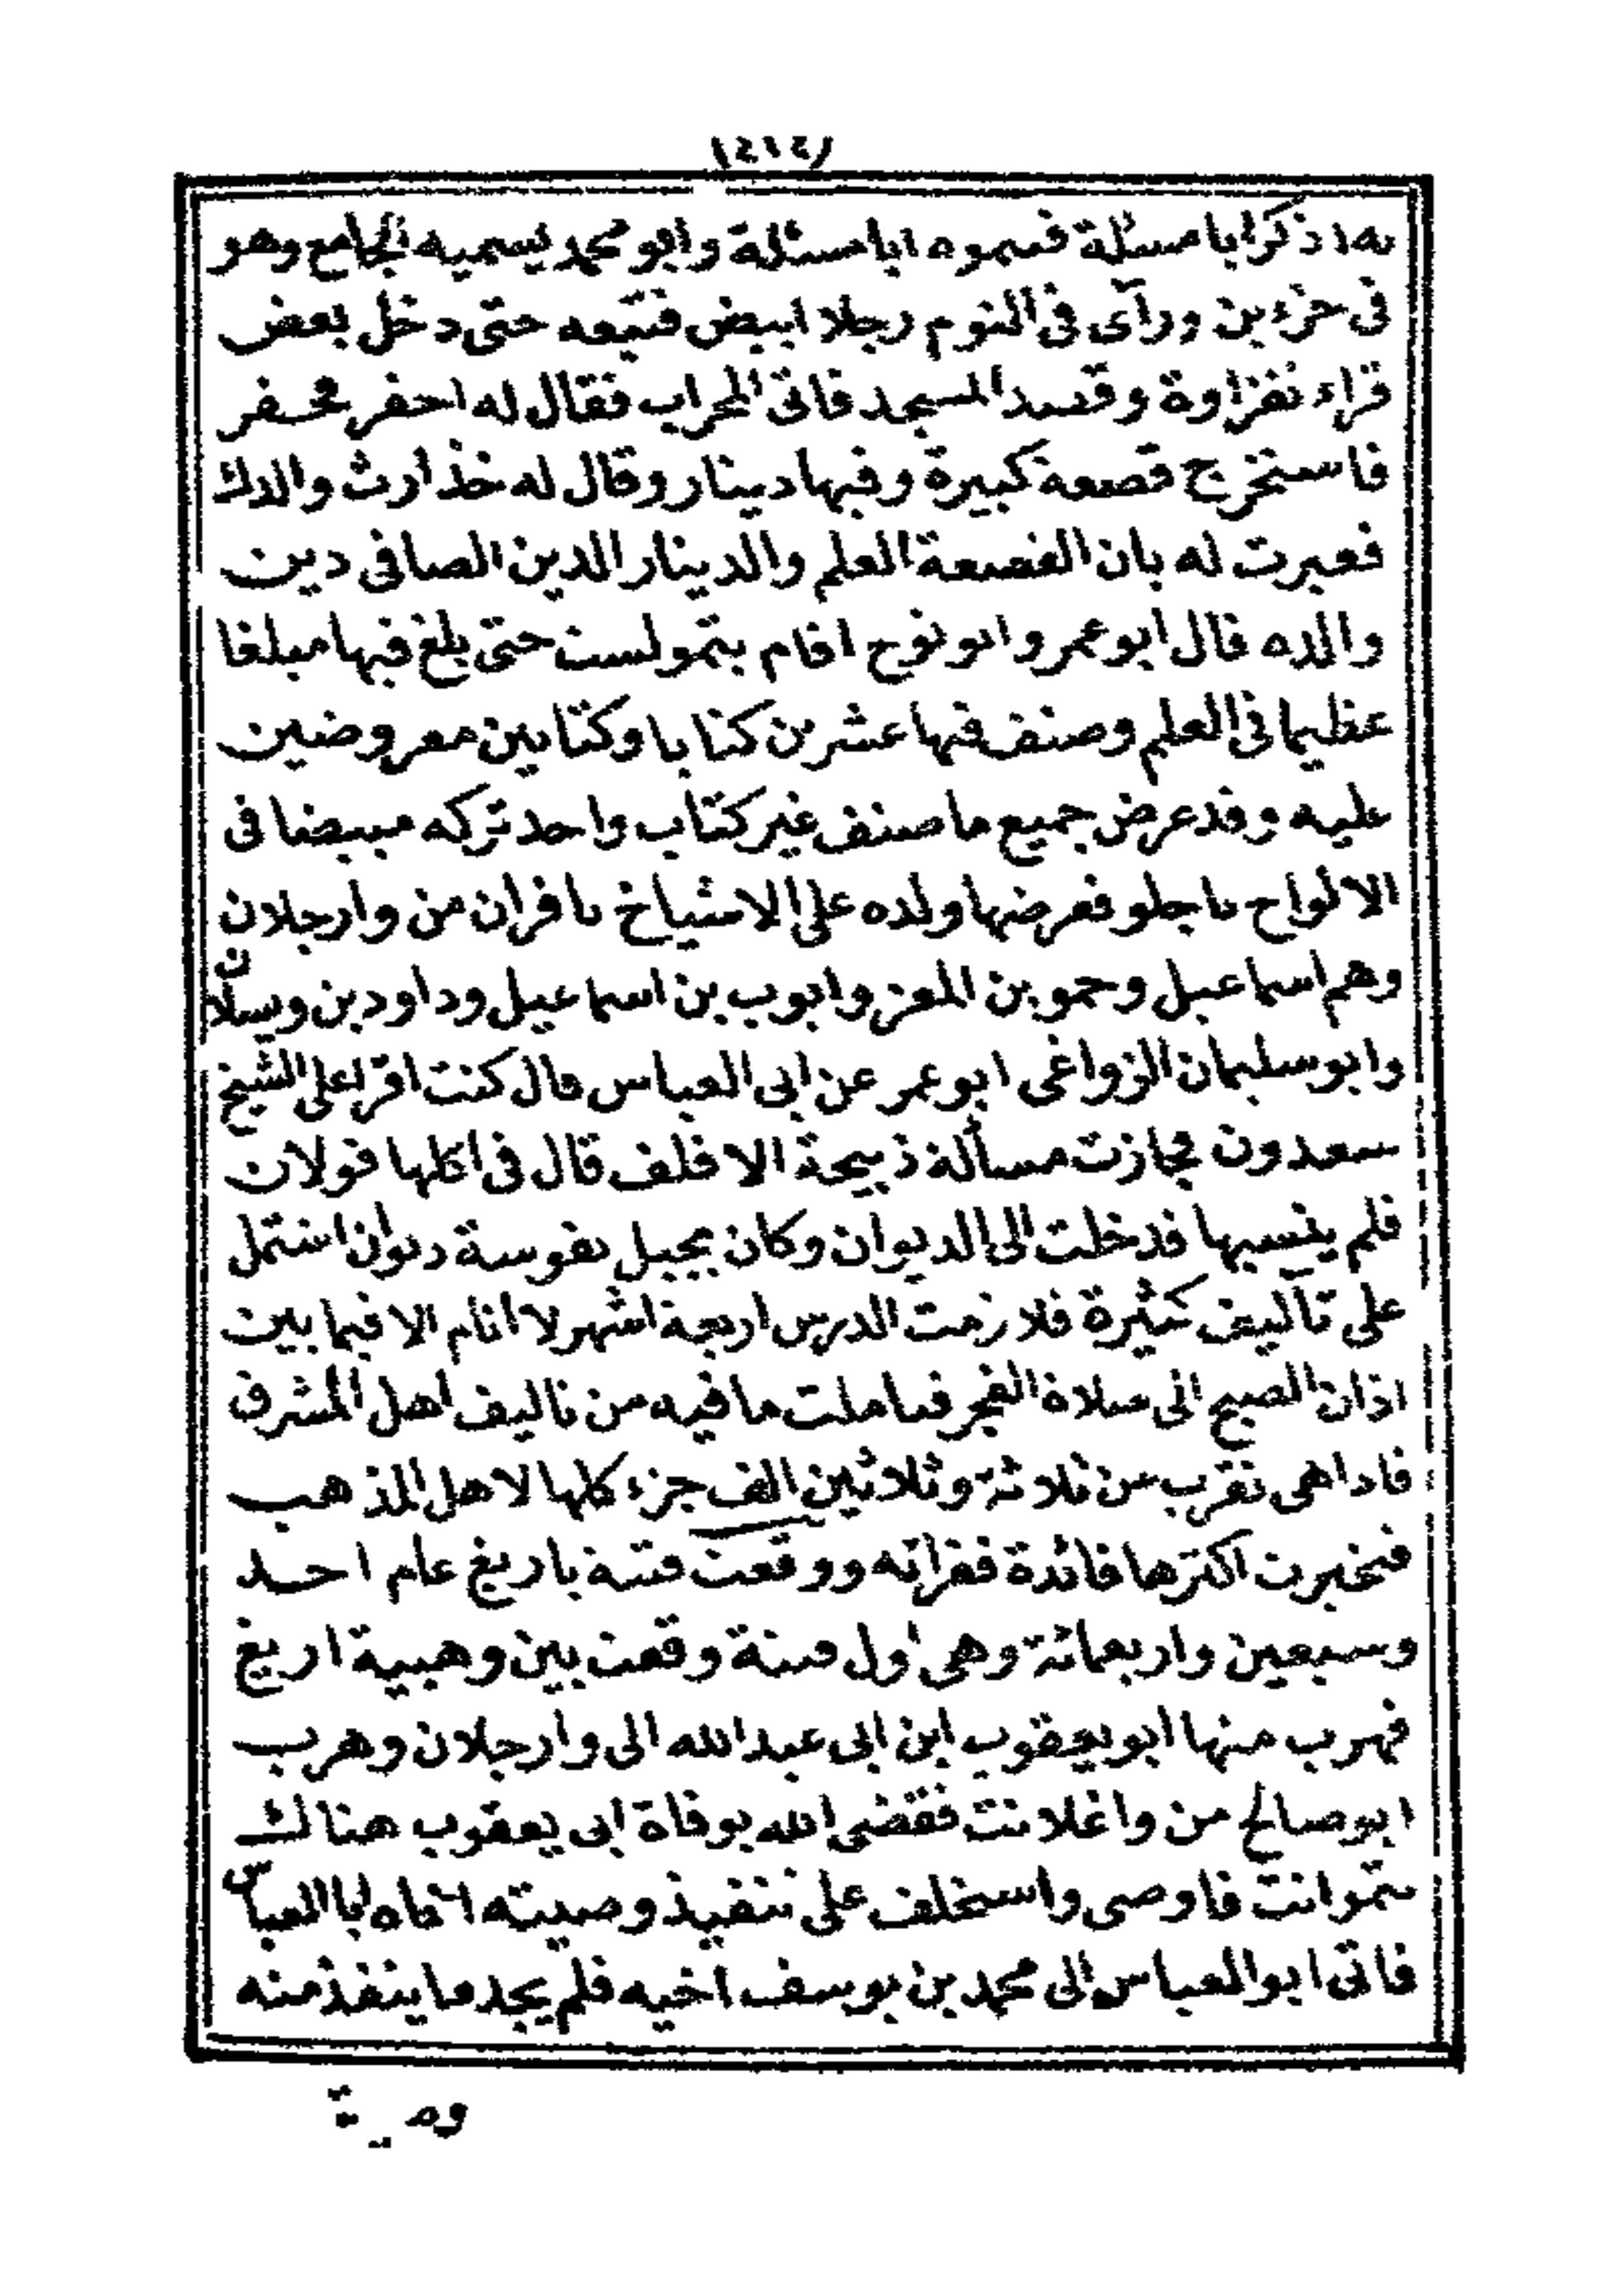 (٤١٤)
به اذكر ابا مسئلة فسموه ابا مسئلة وابو محمد يسميه الجامع وهو
فى جزءين ورآى فى النوم رجلا ابيض فتبعه حتى دخل بعض
قراء نفزاوة وقصد المسجد فاتى المحراب فقال له احفر فحفر
فاستخرج قصعة كبيرة وفيها دينار وقال له خذ ارث والدك
فعبرت له بان القصعة العلم والدينار الدين الصافى دين
والده قال ابو عمر وابو نوح اقام بتمولست حتى بلغ فيها مبلغا
عظيما فى العلم وصنف فيها عشرين كتابا وكتابين معروضين
عليه وقد عرض جميع ما صنف غير كتاب واحد تركه مبيضا فى
الالواح باجلو فعرضها ولده على الاشياخ بافران من وارجلان
وهم اسماعيل وحمو بن المعز وايوب بن اسماعيل وداود بن ويسلان
وابو سليمان الزواغى ابو عمر عن ابى العباس قال كنت اقرا على الشيخ
سعدون فجازت مسألة ذبيحة الاقلف قال فى اكلها قولان
فلم ينسبها فدخلت الى الديوان وكان بجبل نفوسة ديوان اشتمل
على تآليف كثيرة فلازمت الدرس اربعة اشهر لا انام الا فيما بين
اذان الصبح الى صلاة الفجر فتاملت ما فيه من تاليف اهل المشرق
فاذا هى تقرب من ثلاثة وثلاثين الف جزء كلها لاهل المذهب
فتخيرت اكثرها فائدة فقراته ووقعت فتنة باريغ عام احد
وسبعين واربعمائة وهى اول فتنة وقعت بين وهبية اريغ
فهرب منها ابو يعقوب ابن ابى عبد الله الى وارجلان وهرب
ابو صالح من واغلانت فقضى الله بوفاة ابى يعقوب هنالك
بتموانت فاوصى واستخلف على تنفيذ وصيته اخاه ابا العباس
فاتى ابو العباس الى محمد بن يوسف اخيه فلم يجد ما ينفذ منه
وصية